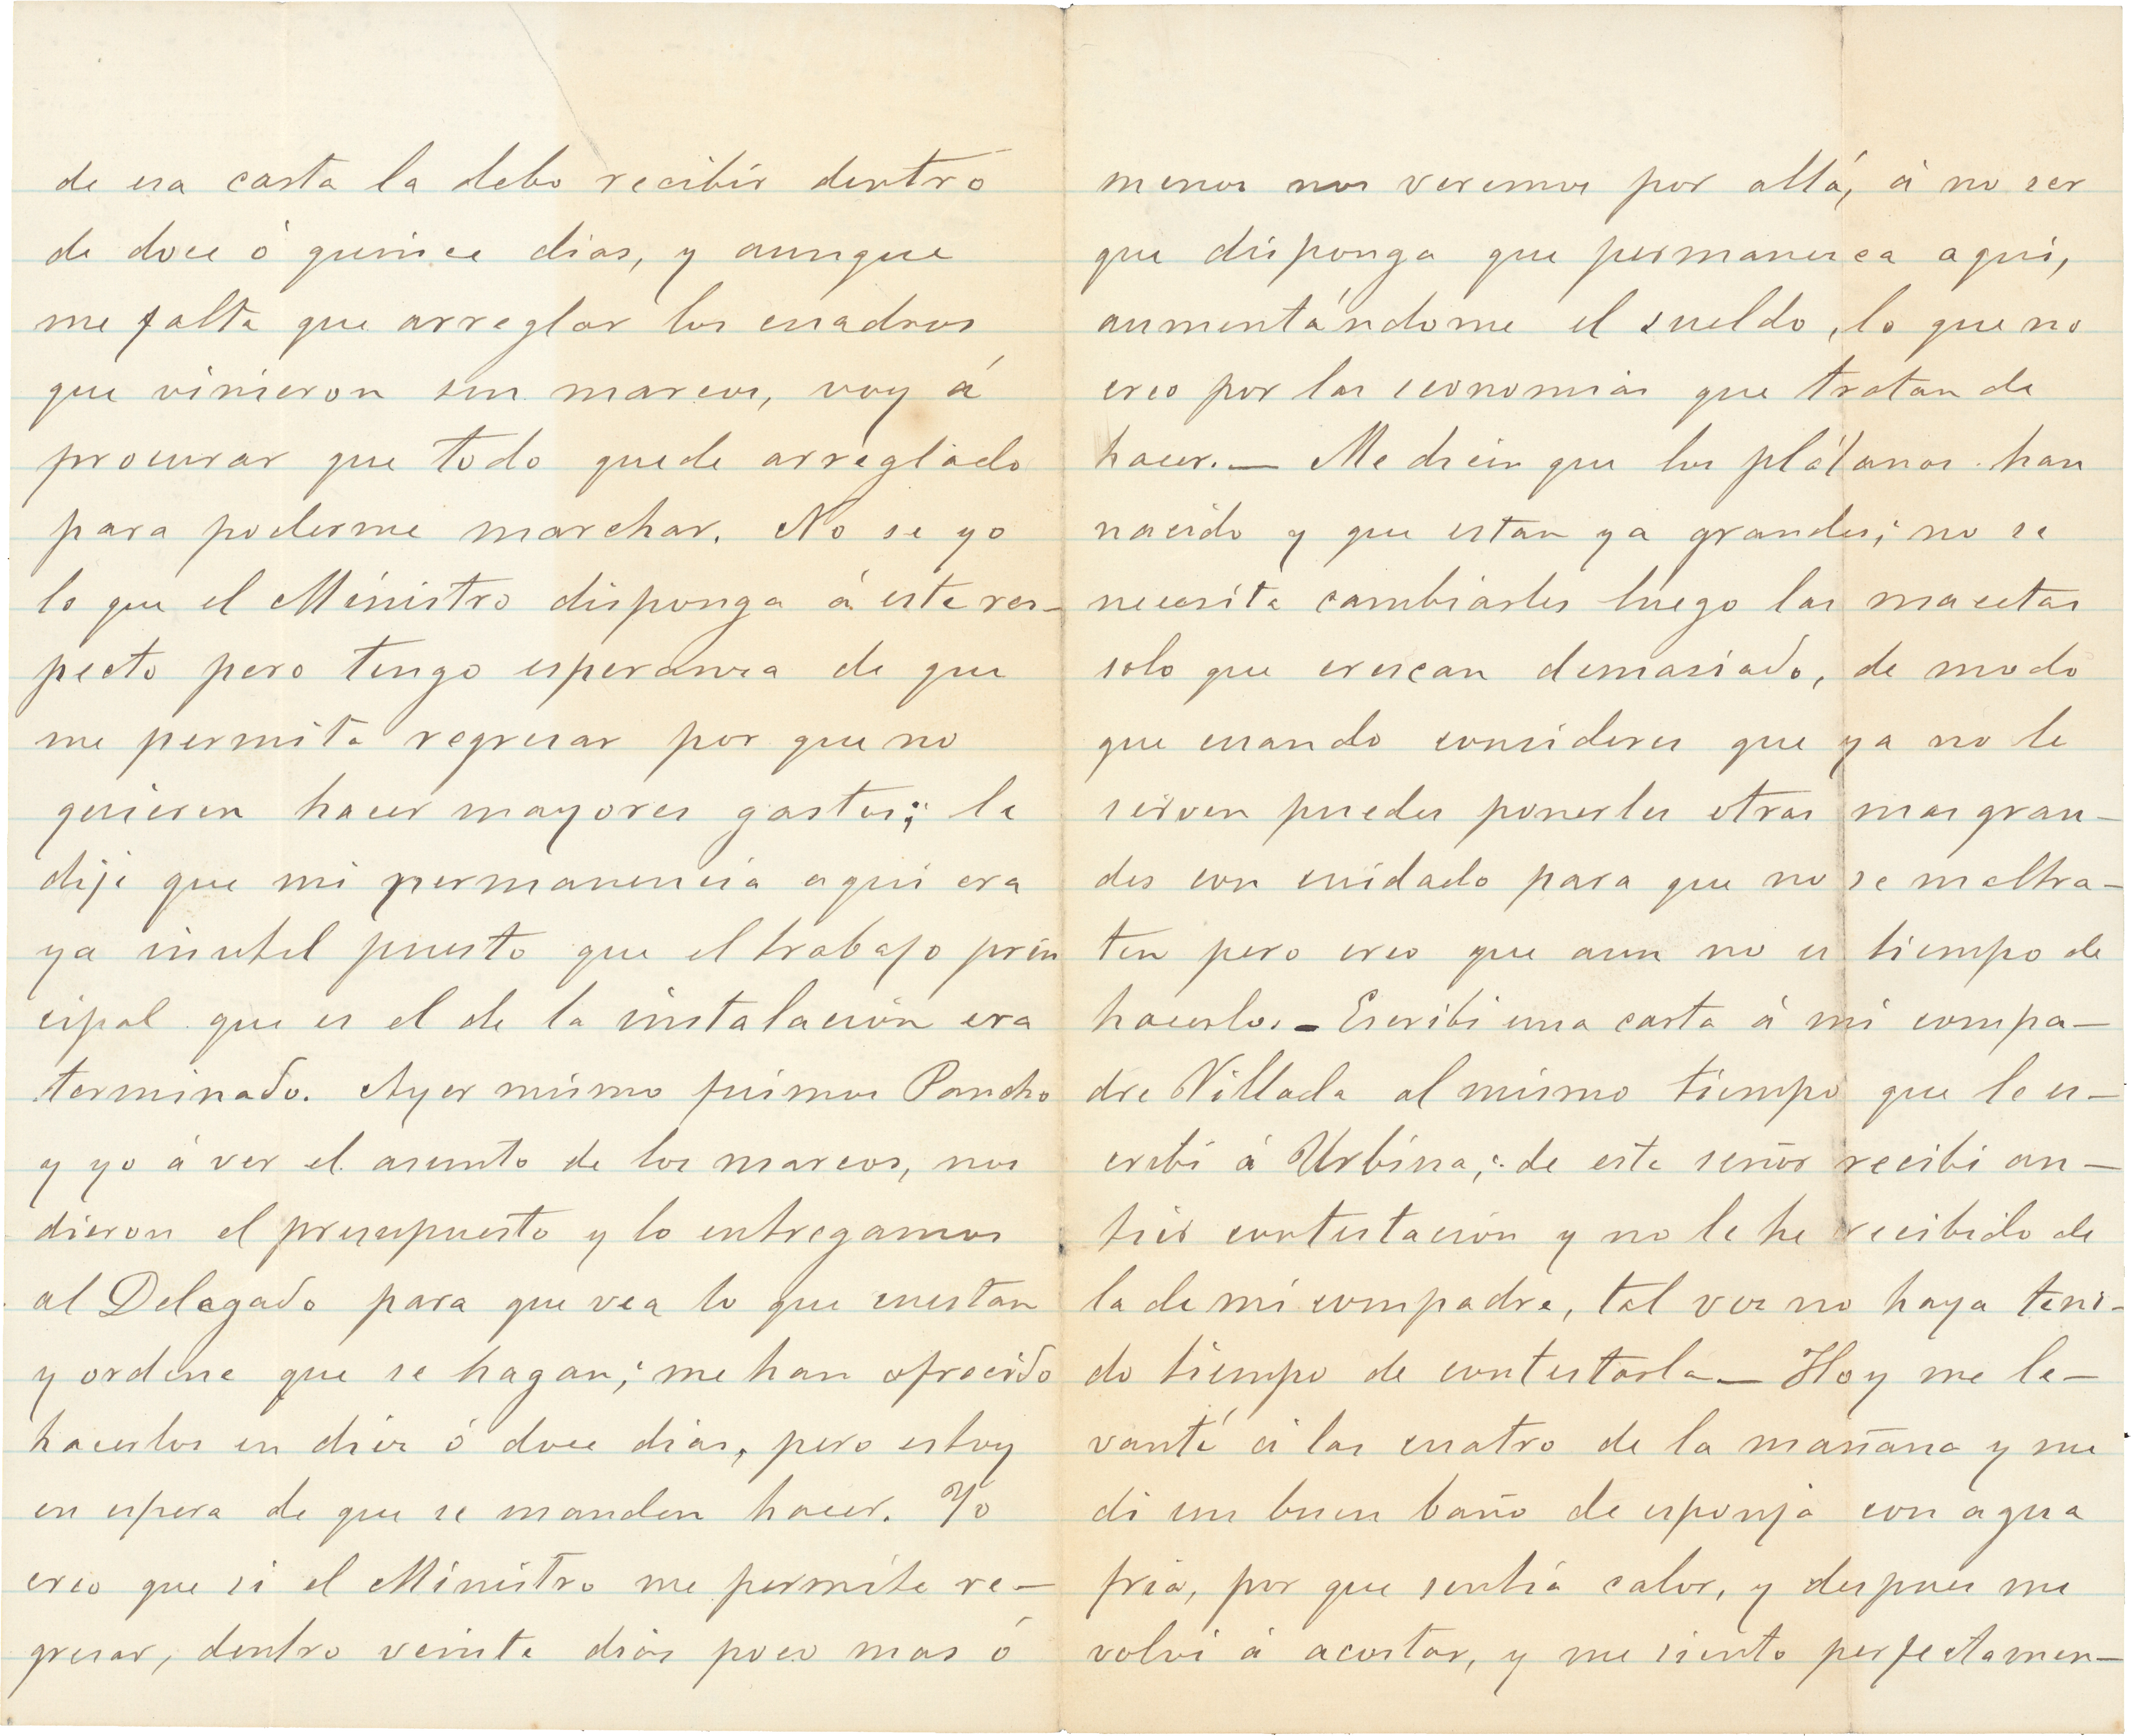 de esa carta la debo recibir dentro
de doce ó quince dias, y aunque
me falta que arreglar los cuadros
que vinieron sin marcos, voy á
procurar que todo quede arreglado
para poderme marchar. No se yo
lo que el Ministro disponga á este res-
pecto pero tengo esperanza de que
me permita regresar por que no
quieren hacer mayores gastos; le
dije que mi permanencia aqui era
ya inutil puesto que el trabajo prin
cipal que es el de la instalación era
terminado. Ayer mismo fuimos Pancho
y yo á ver el asunto de los marcos, nos
dieron el presupuesto y lo entregamos
al Delegado para que vea lo que cuestan
y ordene que se hagan; me han ofrecido
hacerlos en diez ó doce dias, pero estoy
en espera de que se manden hacer. Yo
creo que si el Ministro me permite re-
gresar, dentro veinte dias poco mas ó
menos nos veremos por allá, á no ser
que disponga que permanezca aqui,
aumentándome el sueldo, lo que no
creo por las economias que tratan de
hacer.— Me dicen que los plátanos han
nacido y que estan ya grandes; no se
necesita cambiarles luego las macetas
solo que crezcan demasiado, de modo
que cuando consideres que ya no le
sirven puedes ponerles otras mas gran-
des con cuidado para que no se maltra-
ten pero creo que aun no es tiempo de
hacerlo.- Escribi una carta á mi compa-
dre Villada al mismo tiempo que le es-
cribi á Urbina; de este señor recibi an-
tier contestación y no le he recibido de
la de mi compadre, tal vez no haya teni-
do tiempo de contestarla— Hoy me le-
vanté á las cuatro de la mañana y me
di un buen baño de esponja con agua
fria, por que sentia calor, y despues me
volvi á acostar, y me siento perfectamen-